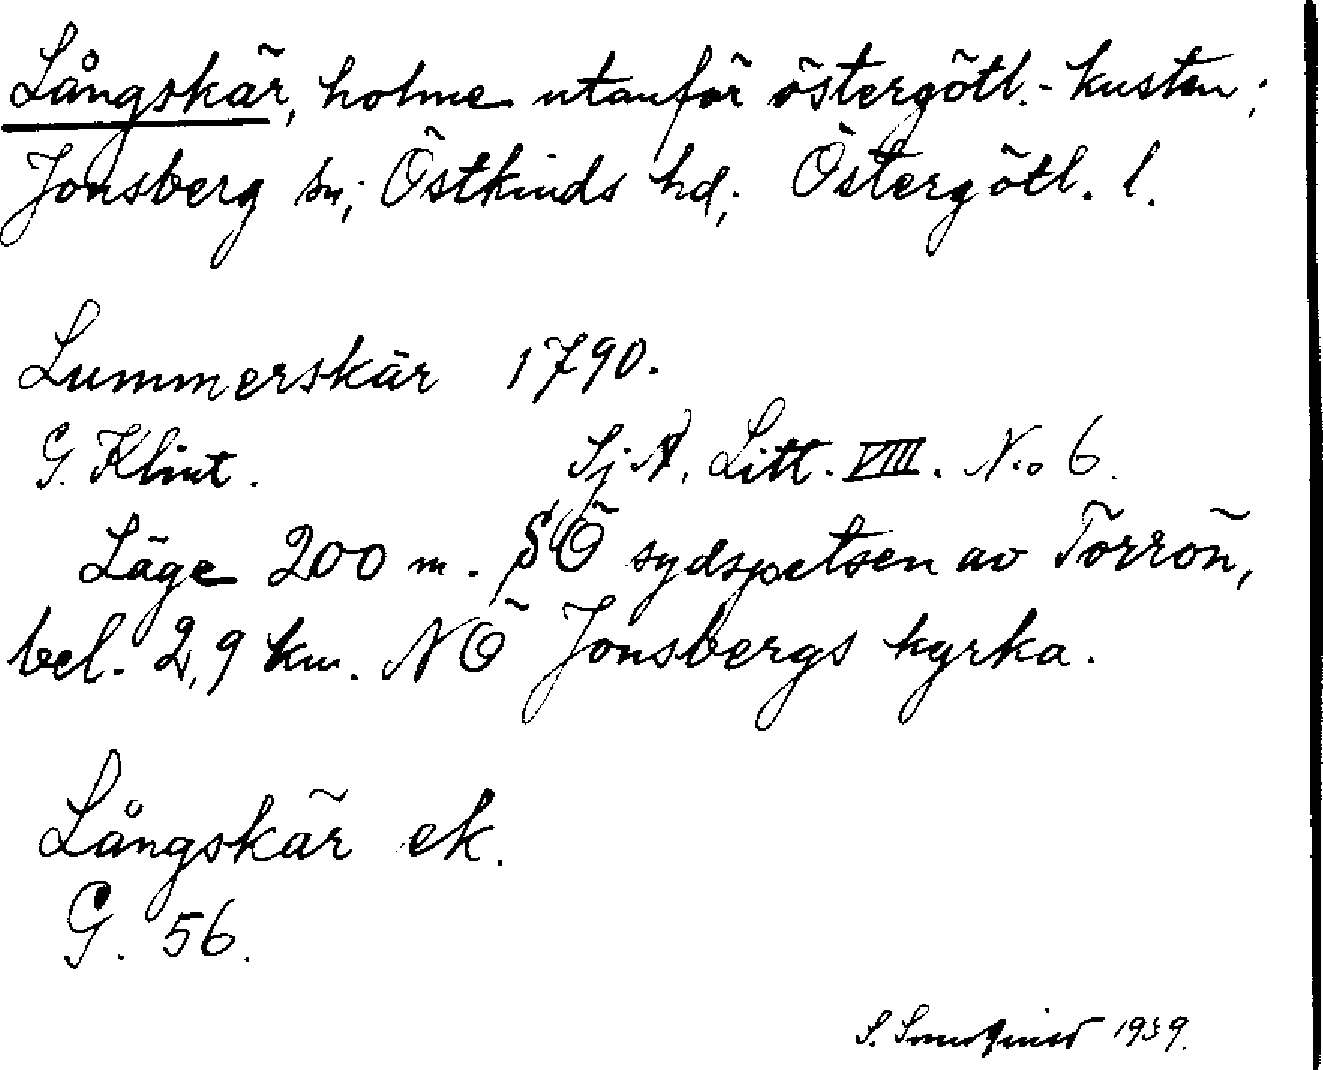 Långskär, holme utanför östergötl.-kusten;
Jonsberg sn; Östkinds hd; Östergötl. l.
Lummerskär 1790.
G. Klint. Sj.A. Litt. VIII. No 6.
Läge 200 m. SÖ sydspetsen av Torrön,
bel. 2,9 km. NÖ Jonsbergs kyrka.
Långskär ek.
G. 56.
S. 1939.